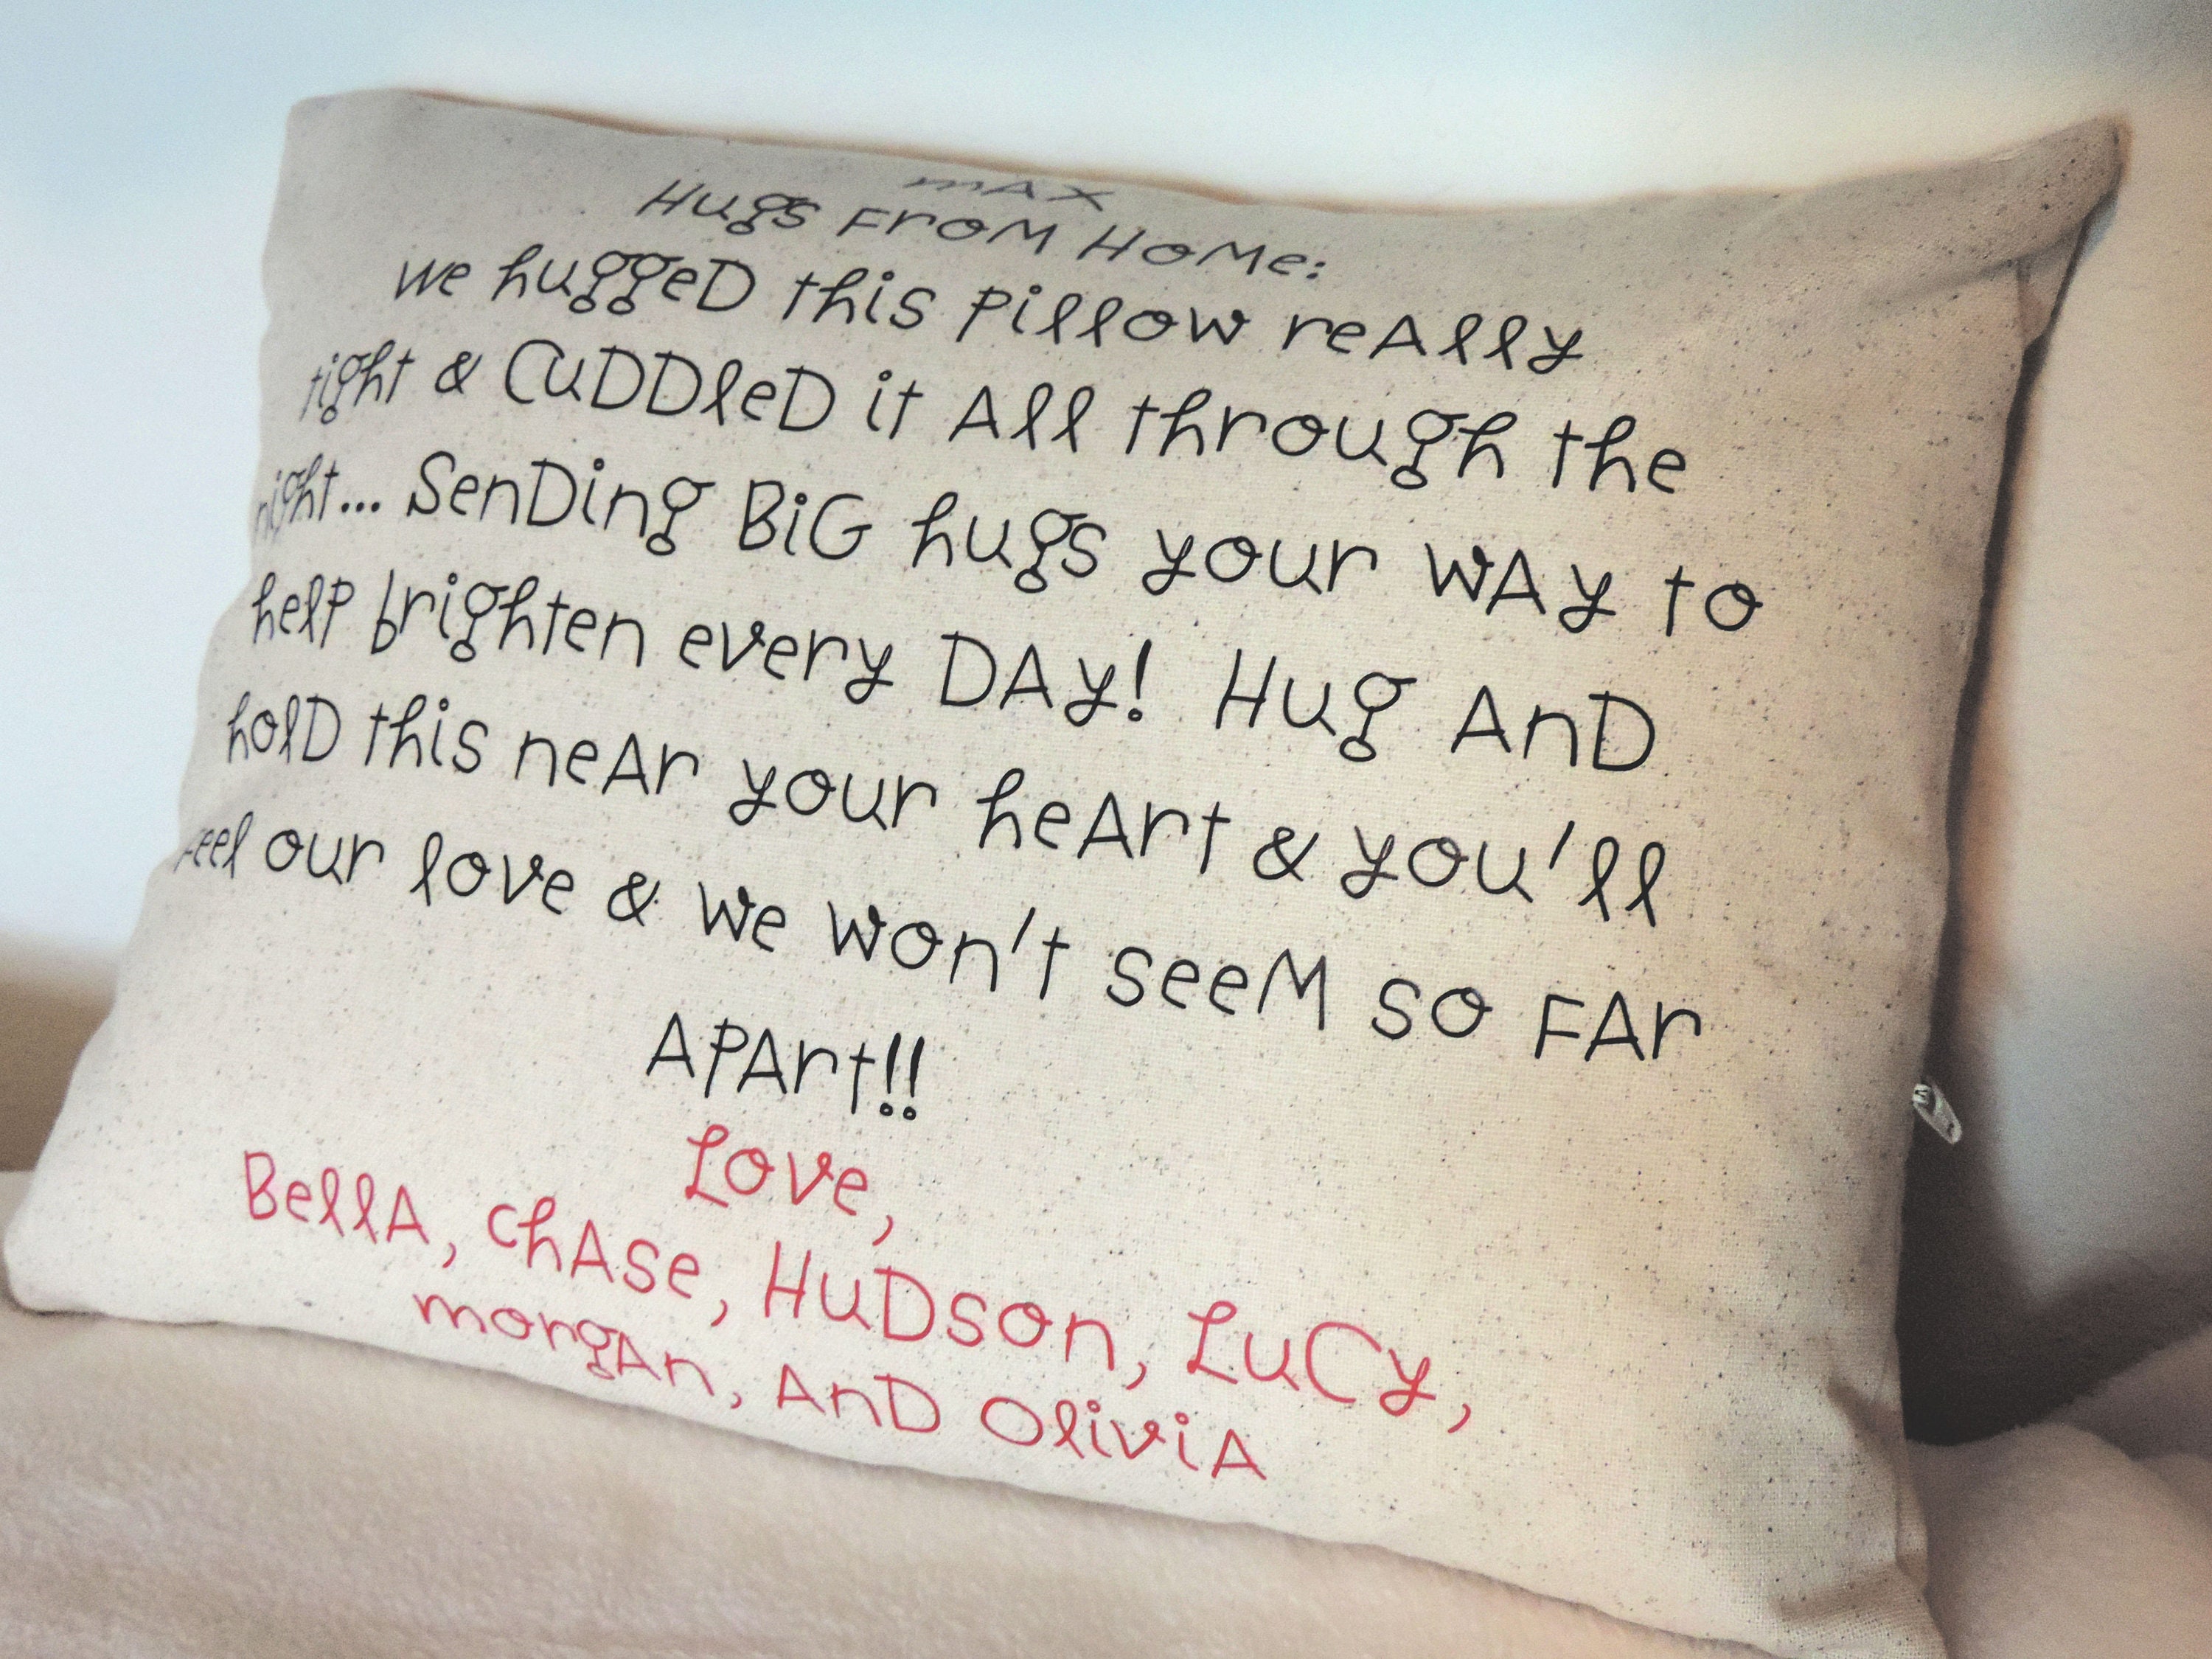 mAX
Hugs FroM HoMe:
we huggeD this Pillow reAlly
tight & CuDDleD it All through the
night... SenDing BiG hugs your wAy to
help brighten every DAy! Hug AnD
holD this neAr your heArt & you'll
Feel our love & we won't seeM so FAr
APArt!!
Love,
BellA, chAse, HuDson, LuCy,
morgAn, AnD OliviA